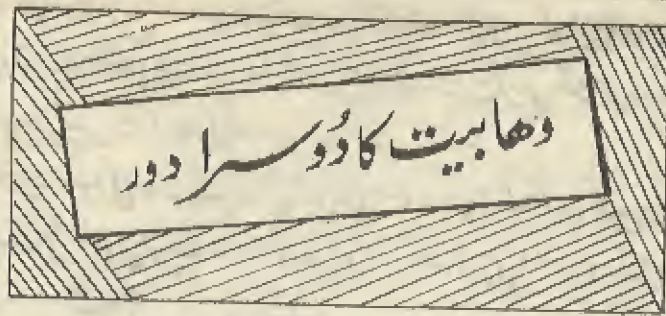 وھابیت کا دُوسرا دور